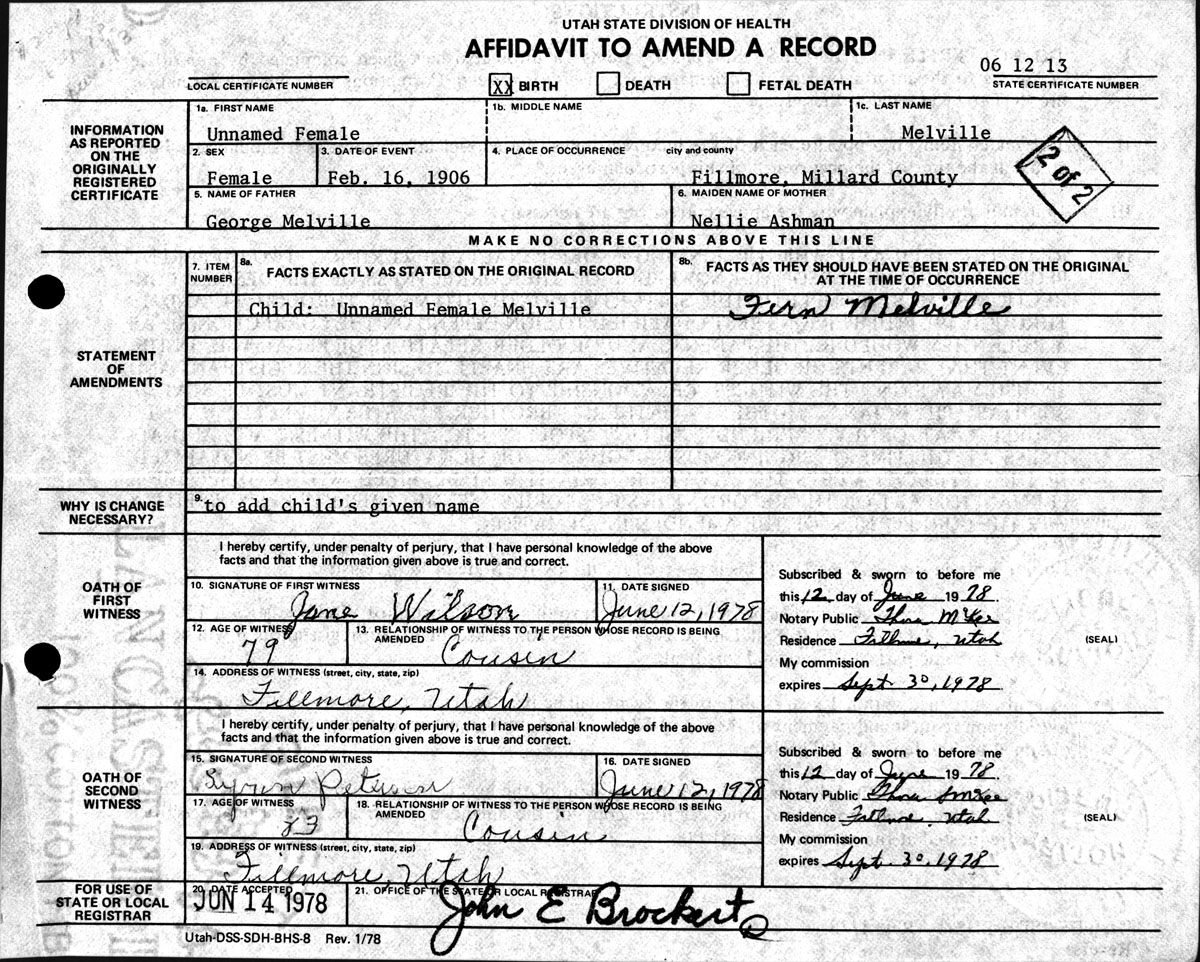 UTAH STATE DIVISION OF HEALTH
AFFIDAVIT TO AMEND A RECORD
06 12 13
LOCAL CERTIFICATE NUMBER XX BIRTH DEATH FETAL DEATH STATE CERTIFICATE NUMBER
INFORMATION AS REPORTED ON THE ORIGINALLY REGISTERED CERTIFICATE
1a. FIRST NAME 1b. MIDDLE NAME 1c. LAST NAME
Unnamed Female Melville
2. SEX 3. DATE OF EVENT 4. PLACE OF OCCURRENCE city and county
Female Feb. 16, 1906 Fillmore, Millard County
2 of 2
5. NAME OF FATHER 6. MAIDEN NAME OF MOTHER
George Melville Nellie Ashman
MAKE NO CORRECTIONS ABOVE THIS LINE
STATEMENT OF AMENDMENTS
7. ITEM NUMBER
8a. FACTS EXACTLY AS STATED ON THE ORIGINAL RECORD
8b. FACTS AS THEY SHOULD HAVE BEEN STATED ON THE ORIGINAL
AT THE TIME OF OCCURRENCE
Child: Unnamed Female Melville Fern Melville
WHY IS CHANGE NECESSARY?
9. to add child's given name
OATH OF FIRST WITNESS
I hereby certify, under penalty of perjury, that I have personal knowledge of the above
facts and that the information given above is true and correct.
10. SIGNATURE OF FIRST WITNESS 11. DATE SIGNED
Jane Wilson June 12, 1978
12. AGE OF WITNESS 13. RELATIONSHIP OF WITNESS TO THE PERSON WHOSE RECORD IS BEING AMENDED
79 Cousin
14. ADDRESS OF WITNESS (street, city, state, zip)
Fillmore, Utah
Subscribed & sworn to before me
this 12 day of June 19 78
Notary Public Thora McKee
Residence Fillmore, Utah (SEAL)
My commission
expires Sept. 30, 1978
OATH OF SECOND WITNESS
I hereby certify, under penalty of perjury, that I have personal knowledge of the above
facts and that the information given above is true and correct.
15. SIGNATURE OF SECOND WITNESS 16. DATE SIGNED
Peterson June 12, 1978
17. AGE OF WITNESS 18. RELATIONSHIP OF WITNESS TO THE PERSON WHOSE RECORD IS BEING AMENDED
83 Cousin
19. ADDRESS OF WITNESS (street, city, state, zip)
Fillmore, Utah
Subscribed & sworn to before me
this 12 day of June 19 78
Notary Public Thora McKee
Residence Fillmore, Utah (SEAL)
My commission
expires Sept. 30, 1978
FOR USE OF STATE OR LOCAL REGISTRAR
20. DATE ACCEPTED 21. OFFICE OF THE STATE OR LOCAL REGISTRAR
JUN 14 1978 John E Brockert
Utah-DSS-SDH-BHS-8 Rev. 1/78